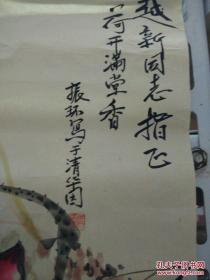 越新同志指正
荷开满堂香
振环写于清华园